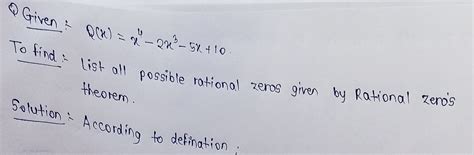 Q Given :- Q(x) = x⁴ - 2x³ - 5x + 10.
To find :- List all possible rational zeros given by Rational zero's
theorem.
Solution :- According to defination :